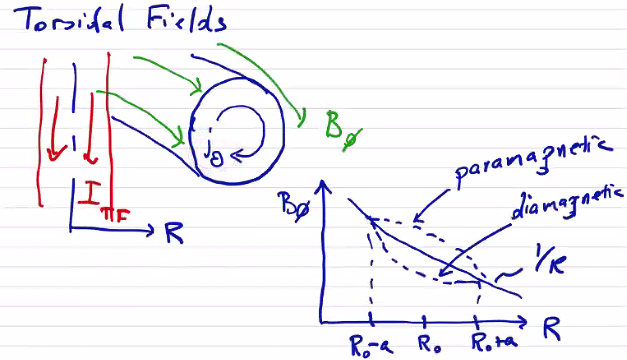 Toroidal Fields
jθ
Bφ
I TF
R
Bφ
paramagnetic
diamagnetic
1/R
R₀-a R₀ R₀+a R